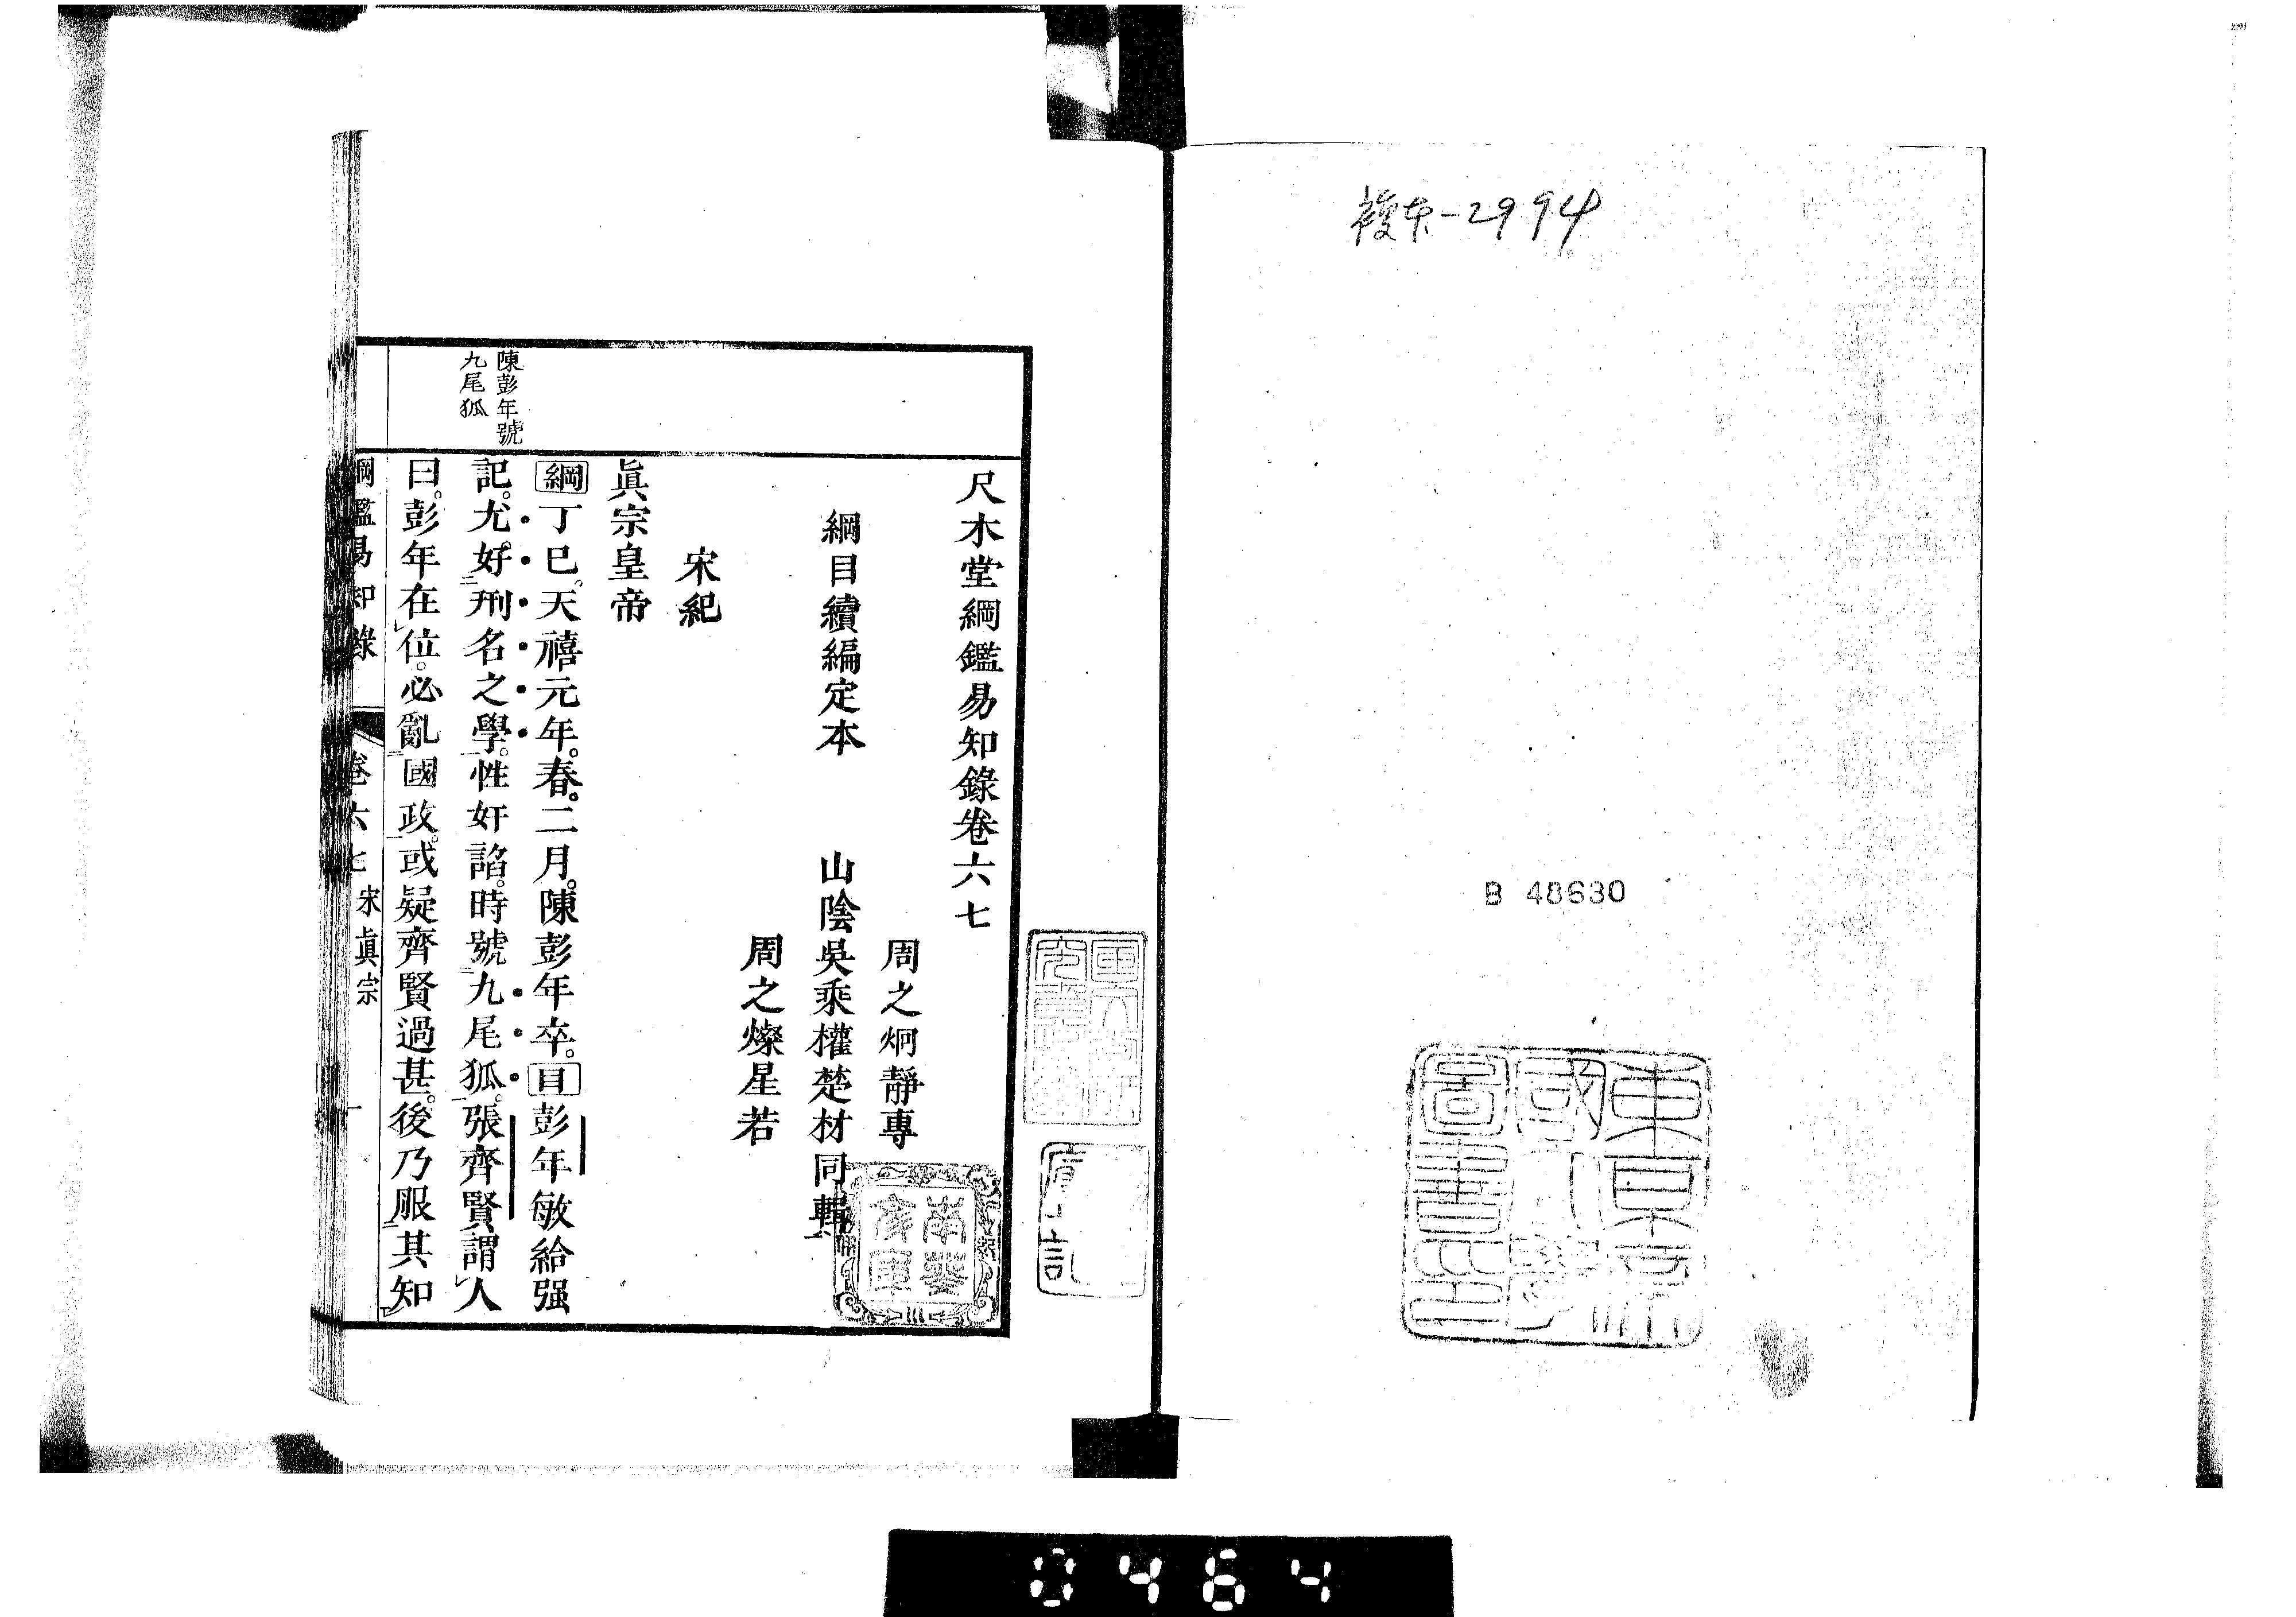 複本-2994
B 48630
東京帝國大學圖書印
尺木堂綱鑑易知錄卷六七
周之炯靜專
綱目續編定本　山陰吳乘權楚材同輯
周之燦星若
宋紀
眞宗皇帝
綱丁巳。天禧元年。春。二月。陳彭年卒。目彭年敏給强
記。尤好刑名之學。性奸諂。時號九尾狐。張齊賢謂人
曰。彭年在位。必亂國政。或疑齊賢過甚。後乃服其知
陳彭年號
九尾狐
綱鑑易知錄　卷六七　宋眞宗　一
0464